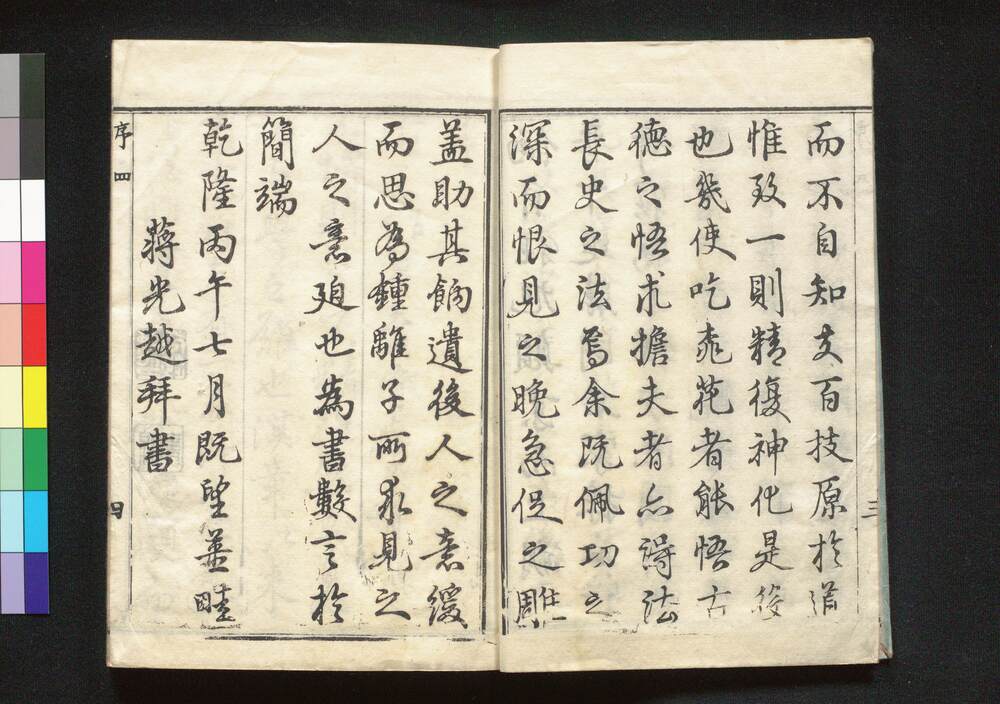 而不自知夫百技原於道
惟致一則精復神化是後
也幾使吃桃花者能悟古
德之悟求擔夫者亦得法
長史之法焉余既佩功之
深而恨見之晚急促之雕
三
盖助其餉遺後人之意緩
而思為鍾離子所求見之
人之意廹也為書數言於
簡端
乾隆丙午七月既望並畦
蔣光越拜書
序四
四